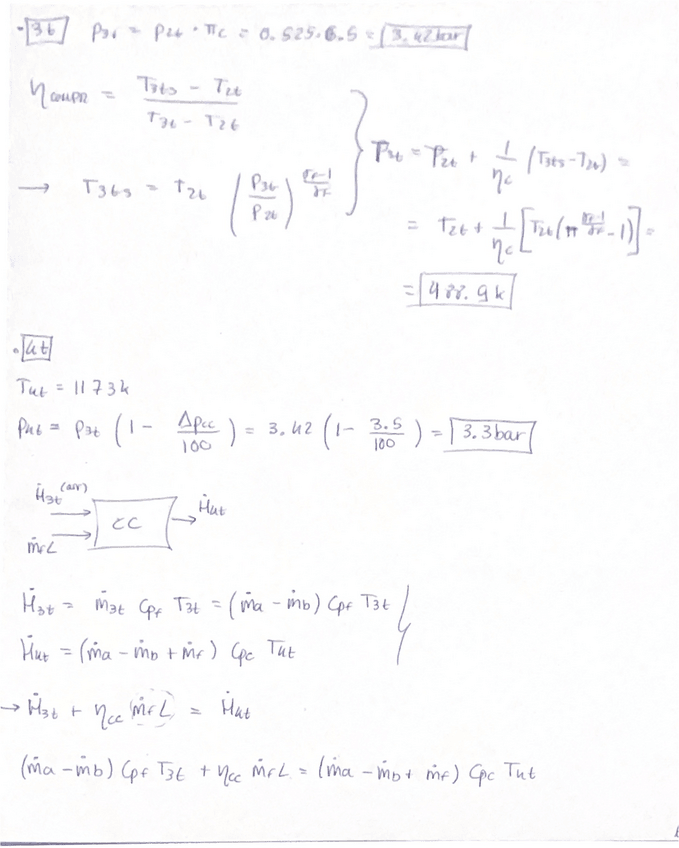 • 3t P3t = P2t · πc = 0.525·6.5 = 3.42 bar
ηcompr = (T3ts − T2t) / (T3t − T2t)
→ T3ts = T2t (P3t / P2t)^((γf−1)/γf)
} T3t = T2t + 1/ηc (T3ts − T2t) =
= T2t + 1/ηc [T2t (π^((γf−1)/γf) − 1)] =
= 488.9k
• 4t
T4t = 1173k
P4t = P3t (1 − Δpcc/100) = 3.42 (1 − 3.5/100) = 3.3 bar
Ḣ3t (air)
CC
Ḣ4t
ṁfL
Ḣ3t = ṁ3t Cpf T3t = (ṁa − ṁb) Cpf T3t
Ḣ4t = (ṁa − ṁb + ṁf) Cpc T4t
→ Ḣ3t + ηcc ṁfL = Ḣ4t
(ṁa − ṁb) Cpf T3t + ηcc ṁfL = (ṁa − ṁb + ṁf) Cpc T4t